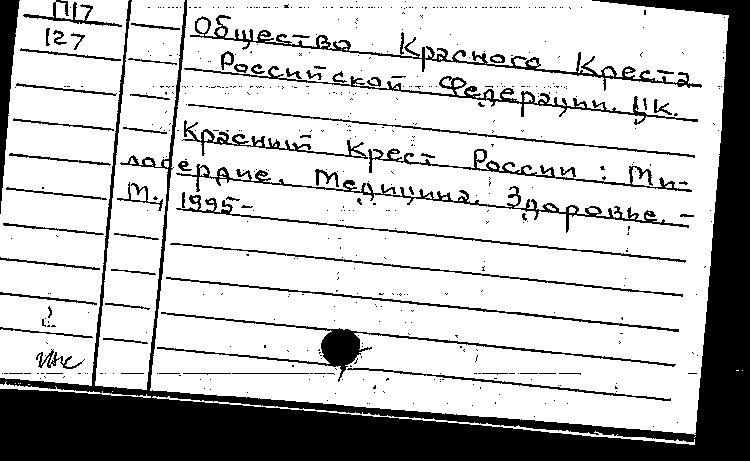 П17
127
Общество Красного Креста
Российской Федерации. ЦК.
Красный Крест России : Ми-
лосердие. Медицина. Здоровье. –
М., 1995–